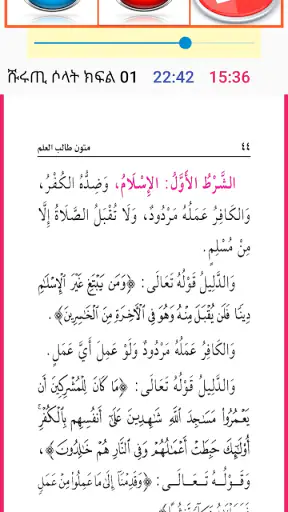 ሹሩጢ ሶላት ክፍል 01 22:42 15:36
٤٤ متون طالب العلم
الشَّرْطُ الأَوَّلُ: الإِسْلَامُ، وَضِدُّهُ الكُفْرُ،
وَالكَافِرُ عَمَلُهُ مَرْدُودٌ، وَلَا تُقْبَلُ الصَّلَاةُ إِلَّا
مِنْ مُسْلِمٍ.
وَالدَّلِيلُ قَوْلُهُ تَعَالَى: ﴿وَمَن يَبْتَغِ غَيْرَ الْإِسْلَامِ
دِينًا فَلَن يُقْبَلَ مِنْهُ وَهُوَ فِي الْآخِرَةِ مِنَ الْخَاسِرِينَ﴾.
وَالكَافِرُ عَمَلُهُ مَرْدُودٌ وَلَوْ عَمِلَ أَيَّ عَمَلٍ.
وَالدَّلِيلُ قَوْلُهُ تَعَالَى: ﴿مَا كَانَ لِلْمُشْرِكِينَ أَن
يَعْمُرُوا۟ مَسَٰجِدَ اللَّهِ شَٰهِدِينَ عَلَىٰٓ أَنفُسِهِم بِالْكُفْرِ ۚ
أُو۟لَٰٓئِكَ حَبِطَتْ أَعْمَٰلُهُمْ وَفِي النَّارِ هُمْ خَٰلِدُونَ﴾،
وَقَوْلُهُ تَعَالَى: ﴿وَقَدِمْنَآ إِلَىٰ مَا عَمِلُوا۟ مِنْ عَمَلٍ